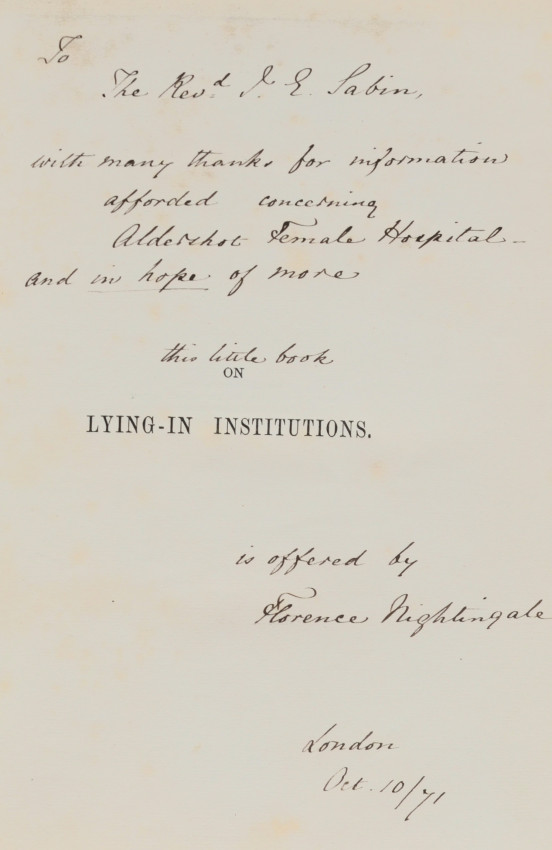 To
The Revd. J. E. Sabin,
with many thanks for information
afforded concerning
Aldershot Female Hospital -
and in hope of more
this little book
ON
LYING-IN INSTITUTIONS.
is offered by
Florence Nightingale
London
Oct. 10/71